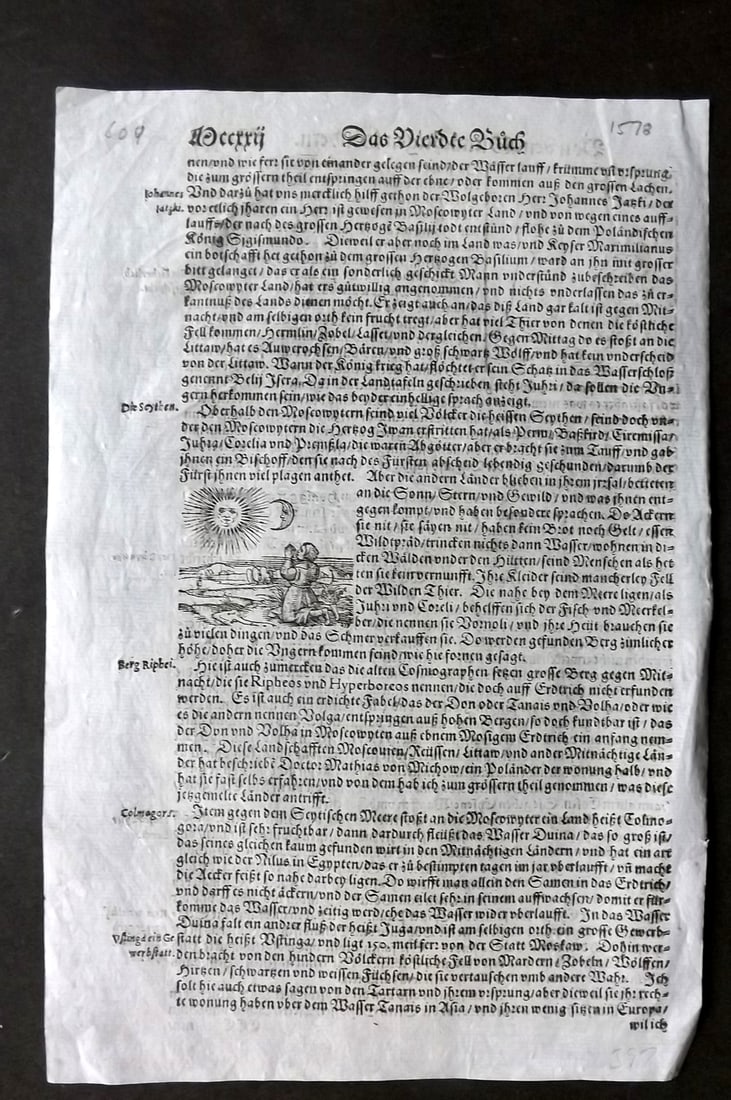 609
Mccxxij Das Vierdte Bůch 1578
nen/vnd wie ferr sie von einander gelegen seind/der Wässer lauff/krümme vñ vrsprung/
die zum grössern theil entspringen auff der ebne/oder kommen auß den grossen Lachen.
Johannes Jatzki.
Vnd darzů hat vns mercklich hilff gethon der Wolgeboren Herr Johannes Jatzki/der
vor etlich jharen ein Herr ist gewesen in Moscowyter Land/vnd von wegen eines auff-
lauffs/der nach des grossen Hertzogē Basilij todt entstůnd/flohe zů dem Poländischen
König Sigismundo. Dieweil er aber noch im Land was/vnd Keyser Maximilianus
ein botschafft het gethon zů dem grossen Hertzogen Basilium/ward an jhn mit grosser
bitt gelanget/das er als ein sonderlich geschickt Mann vnderstůnd zubeschreiben das
Moscowyter Land/hat ers gůtwillig angenommen/vnd nichts vnderlassen das zů er-
kantnuß des Lands dienen möcht. Er zeigt auch an/das diß Land gar kalt ist gegen Mit-
nacht/vnd am selbigen orth kein frucht tregt/aber hat viel Thier von denen die köstliche
Fell kommen/Hermlin/Zobel/Lasset/vnd dergleichen. Gegen Mittag do es stoßt an die
Littaw/hat es Auwerochsen/Bären/vnd groß schwartz Wölff/vnd hat kein vnderscheid
von der Littaw. Wann der König krieg hat/flöchtet er sein Schatz in das Wasserschloß
genennt Belij Jsera. Da in der Landtafeln geschrieben steht Juhri/da sollen die Vn-
gern herkommen sein/wie das beyder einhellige sprach anzeigt.
Die Scythen.
Oberhalb den Moscowytern seind viel Völcker die heissen Scythen/seind doch vn-
der den Moscowytern die Hertzog Iwan erstritten hat/als Perm/Baßkird/Ciremissa/
Juhra/Corelia vnd Premßla/die waren Abgötter/aber er bracht sie zum Tauff/vnd gab
jhnen ein Bischoff/den sie nach des Fürsten abscheid lebendig geschunden/darumb der
Fürst jhnen viel plagen anthet. Aber die andern Länder blieben in jhrem jrrsal/betteten
an die Sonn/Stern/vnd Gewild/vnd was jhnen ent-
gegen kompt/vnd haben besondere sprachen. Do Ackern
sie nit/sie säyen nit/haben kein Brot noch Gelt/essen
Wildpräd/trincken nichts dann Wasser/wohnen in di-
cken Wälden vnder den Hütten/seind Menschen als het
ten sie kein vernunfft. Ihre Kleider seind mancherley Fell
der Wilden Thier. Die nahe bey dem Meere ligen/als
Juhri vnd Coreli/behelffen sich der Fisch vnd Meerkel-
ber/die nennen sie Vornoli/vnd jhre Heüt brauchen sie
zů vielen dingen/vnd das Schmer verkauffen sie. Do werden gefunden Berg zimlicher
höhe/doher die Vngern kommen seind/wie hie fornen gesagt.
Berg Riphei.
Hie ist auch zůmercken das die alten Cosmographen setzen grosse Berg gegen Mit-
nacht/die sie Ripheos vnd Hyperboreos nennen/die doch auff Erdtrich nicht erfunden
werden. Es ist auch ein erdichte Fabel/das der Don oder Tanais vnd Volha/oder wie
es die andern nennen Volga/entspringen auß hohen Bergen/so doch kundtbar ist/das
der Don vnd Volha in Moscowyten auß ebnem Mosigem Erdtrich ein anfang nem-
men. Diese Landschafften Moscouien/Reüssen/Littaw/vnd ander Mitnächtige Län-
der hat beschriebē Doctor Mathias von Michow/ein Poländer der wonung halb/vnd
hat sie fast selbs erfahren/vnd von dem hab ich zum grössern theil genommen/was diese
jetzgemelte Länder antrifft.
Colmogora.
Item gegen dem Scytischen Meere stoßt an die Moscowyter ein Land heißt Colmo-
gora/vnd ist sehr fruchtbar/dann dardurch fleüßt das Wasser Duina/das so groß ist/
das seines gleichen kaum gefunden wirt in den Mitnächtigen Ländern/vnd hat ein art
gleich wie der Nilus in Egypten/das er zů bestimpten tagen im jar vberlaufft/vñ macht
die Aecker feißt so nahe darbey ligen. Do wirfft man allein den Samen in das Erdtrich/
vnd darff es nicht äckern/vnd der Samen eilet sehr in seinem auffwachsen/domit er für-
komme das Wasser/vnd zeitig werd/ehe das Wasser wider vberlaufft. In das Wasser
Duina falt ein andrer fluß der heißt Juga/vnd ist am selbigen orth ein grosse Gewerb-
Vstinga ein Ge
werbstatt.
statt die heißt Vstinga/vnd ligt 150. meil ferr von der Statt Moskaw. Dohin wer-
den bracht von den hindern Völckern köstliche Fell von Mardern/Zobeln/Wölffen/
Hirtzen/schwartzen vnd weissen Füchsen/die sie vertauschen vmb andere Wahr. Ich
solt hie auch etwas sagen von den Tartarn vnd jhrem vrsprung/aber dieweil sie jhr rech-
te wonung haben vber dem Wasser Tanais in Asia/vnd jhren wenig sitzen in Europa/
wil ich
397